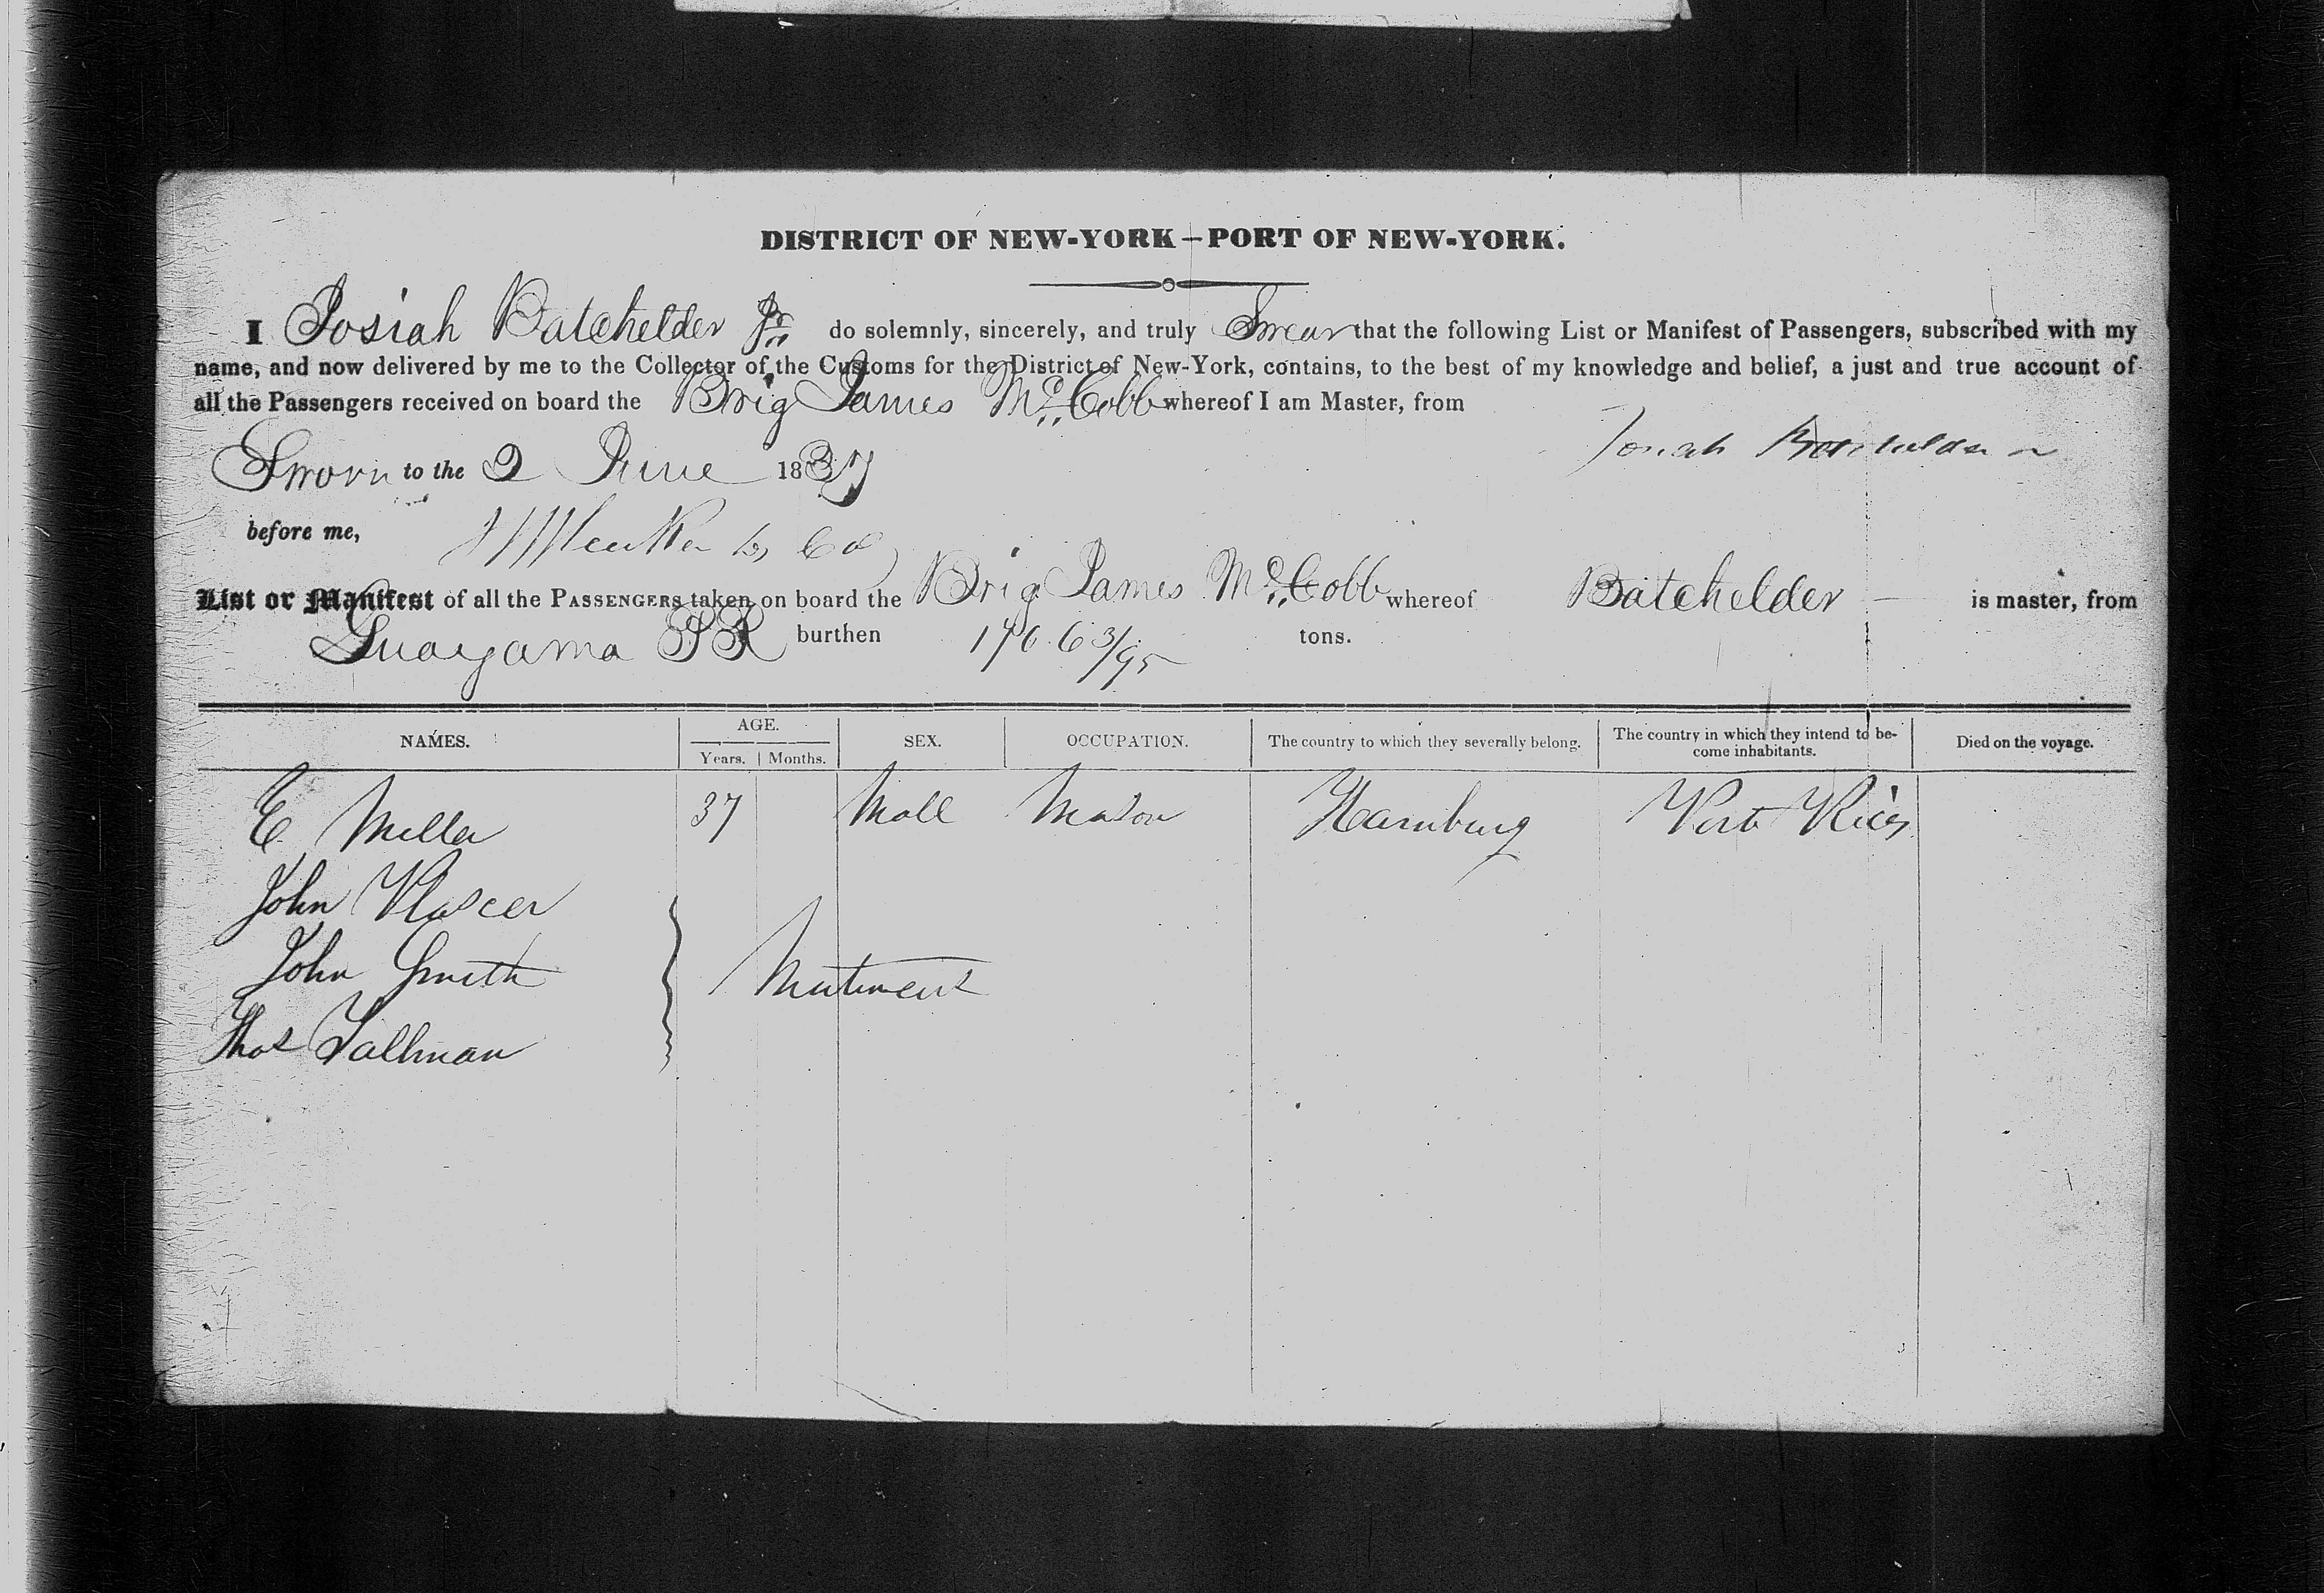 DISTRICT OF NEW-YORK—PORT OF NEW-YORK.
I Josiah Batchelder Jr. do solemnly, sincerely, and truly Swear that the following List or Manifest of Passengers, subscribed with my
name, and now delivered by me to the Collector of the Customs for the District of New-York, contains, to the best of my knowledge and belief, a just and true account of
all the Passengers received on board the Brig James McCobb whereof I am Master, from
Josiah Batchelder Jr
Sworn to the 2 June 1837
before me,
List or Manifest of all the PASSENGERS taken on board the Brig James McCobb whereof Batchelder is master, from
Guayama PR burthen 176 63/95 tons.
NAMES. AGE. SEX. OCCUPATION. The country to which they severally belong. The country in which they intend to be- Died on the voyage.
Years. Months. come inhabitants.
E Miller 37 Male Mason Hamburg Porto Rico
John
John Smith
Thos Tallman